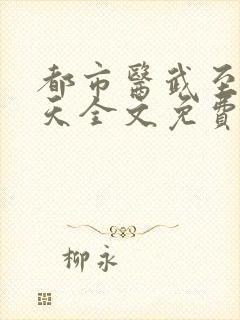 都市醫武至
天全文免費
柳永